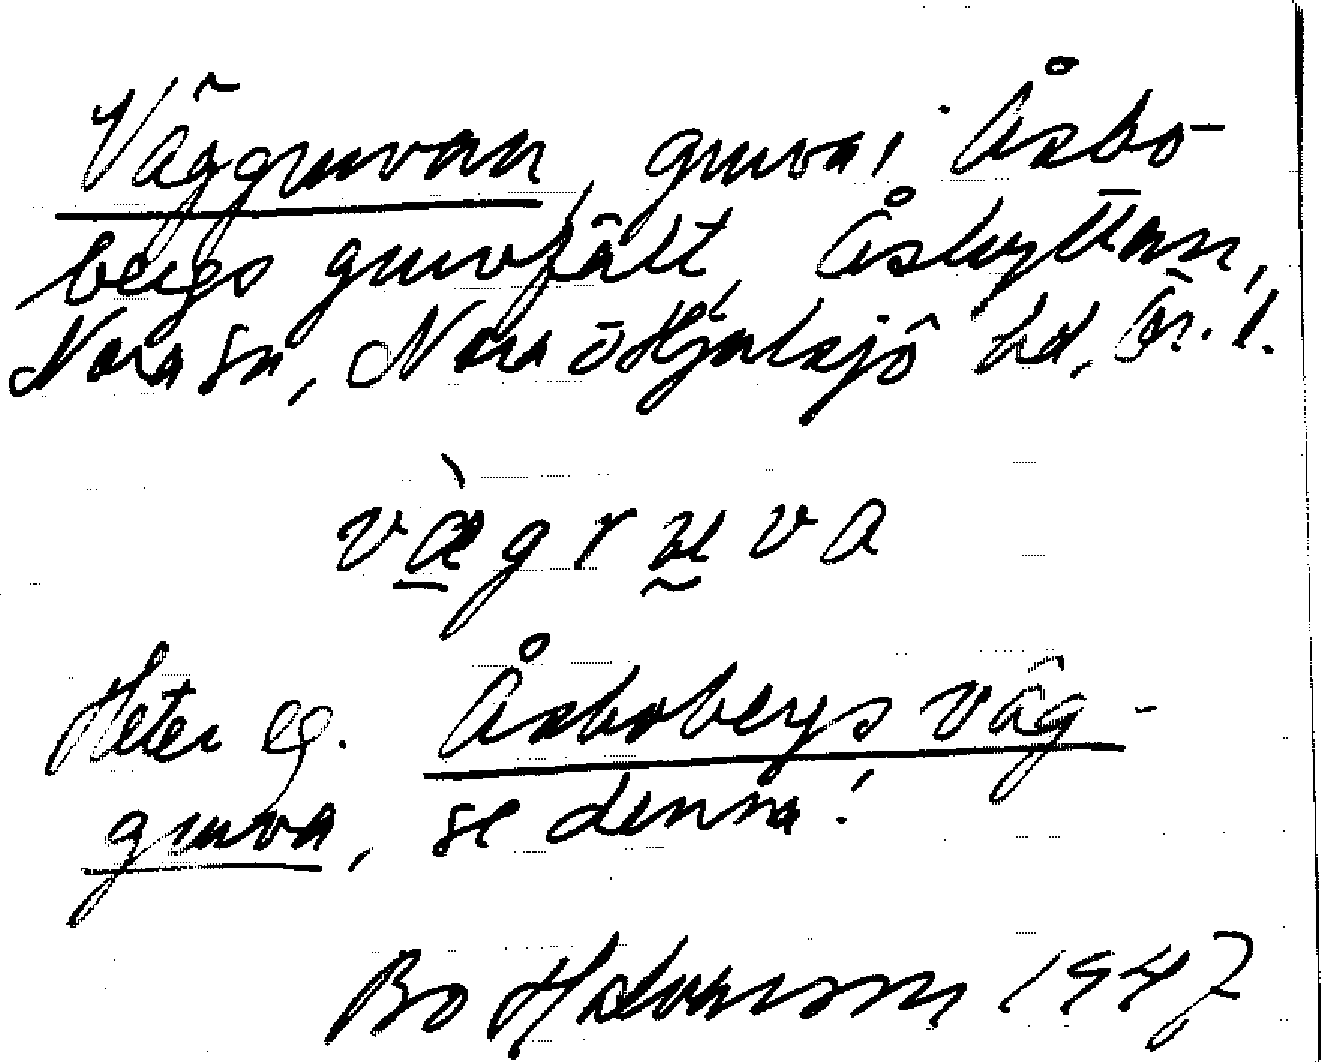 Väggruvan, gruva i Åsbo-
bergs gruvfält, Åshyttan,
Nora sn, Nora o Hjulsjö hd, Ör. l.
v&#x0331;ægruva
Heter eg. Åsbobergs väg-
gruva, se denna!
Bo Halvarsson 1947